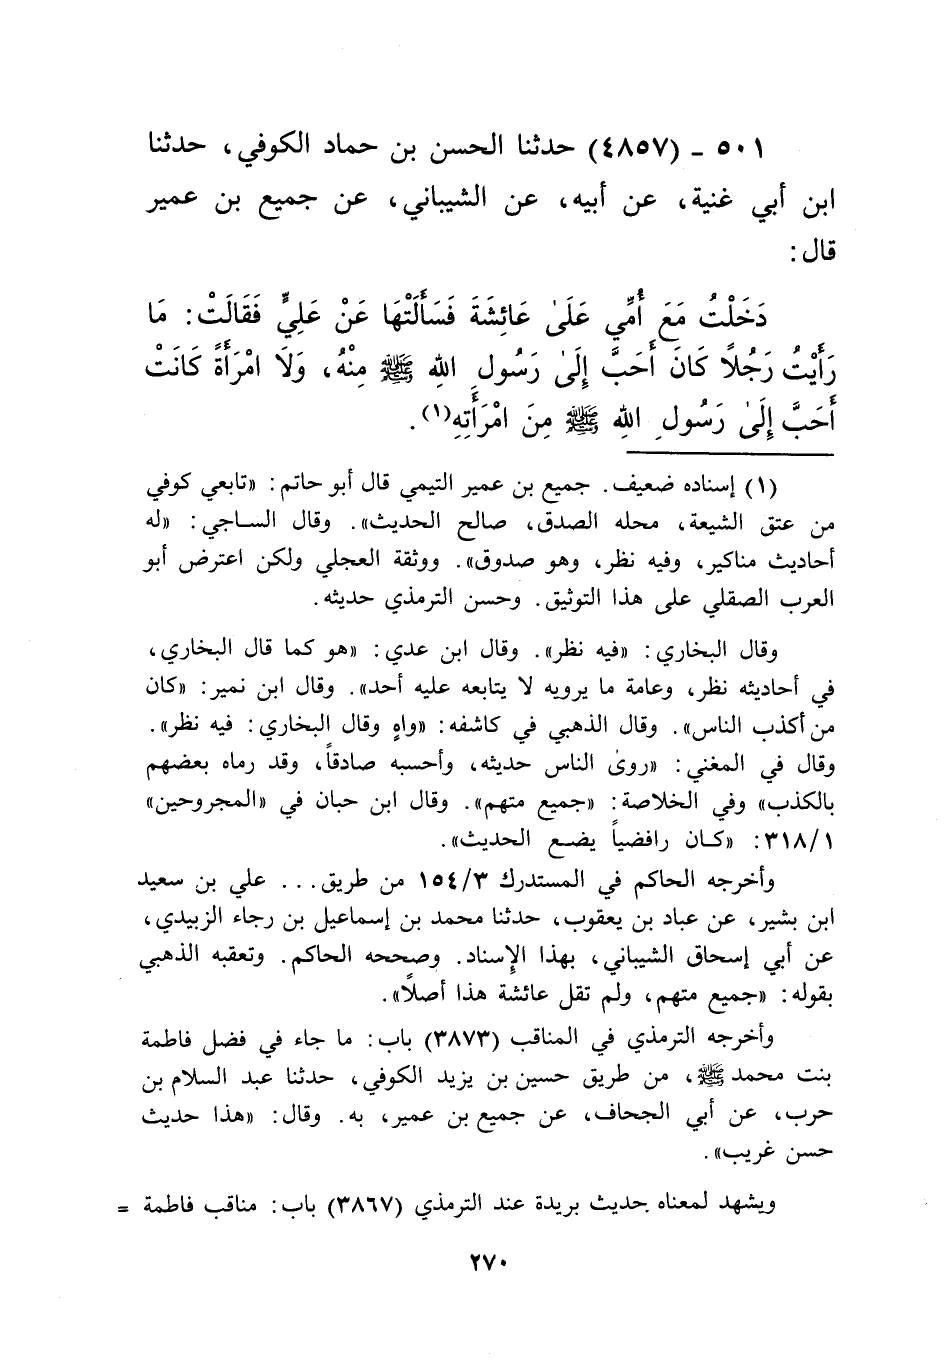 ٥٠١ ـ (٤٨٥٧) حدثنا الحسن بن حماد الكوفي، حدثنا
ابن أبي غنية، عن أبيه، عن الشيباني، عن جميع بن عمير
قال:
دَخَلْتُ مَعَ أُمِّي عَلَىٰ عَائِشَةَ فَسَأَلَتْهَا عَنْ عَلِيٍّ فَقَالَتْ: مَا
رَأَيْتُ رَجُلاً كَانَ أَحَبَّ إِلَىٰ رَسُولِ اللهِ ﷺ مِنْهُ، وَلَا امْرَأَةً كَانَتْ
أَحَبَّ إِلَىٰ رَسُولِ اللهِ ﷺ مِنَ امْرَأَتِهِ(١).
(١) إسناده ضعيف. جميع بن عمير التيمي قال أبو حاتم: «تابعي كوفي
من عتق الشيعة، محله الصدق، صالح الحديث». وقال الساجي: «له
أحاديث مناكير، وفيه نظر، وهو صدوق». ووثقة العجلي ولكن اعترض أبو
العرب الصقلي على هذا التوثيق. وحسن الترمذي حديثه.
وقال البخاري: «فيه نظر». وقال ابن عدي: «هو كما قال البخاري،
في أحاديثه نظر، وعامة ما يرويه لا يتابعه عليه أحد». وقال ابن نمير: «كان
من أكذب الناس». وقال الذهبي في كاشفه: «واهٍ وقال البخاري: فيه نظر».
وقال في المغني: «روىٰ الناس حديثه، وأحسبه صادقاً، وقد رماه بعضهم
بالكذب» وفي الخلاصة: «جميع متهم». وقال ابن حبان في «المجروحين»
٣١٨/١: «كان رافضياً يضع الحديث».
وأخرجه الحاكم في المستدرك ١٥٤/٣ من طريق... علي بن سعيد
ابن بشير، عن عباد بن يعقوب، حدثنا محمد بن إسماعيل بن رجاء الزبيدي،
عن أبي إسحاق الشيباني، بهذا الإسناد. وصححه الحاكم. وتعقبه الذهبي
بقوله: «جميع متهم، ولم تقل عائشة هذا أصلاً».
وأخرجه الترمذي في المناقب (٣٨٧٣) باب: ما جاء في فضل فاطمة
بنت محمد ﷺ، من طريق حسين بن يزيد الكوفي، حدثنا عبد السلام بن
حرب، عن أبي الجحاف، عن جميع بن عمير، به. وقال: «هذا حديث
حسن غريب».
ويشهد لمعناه حديث بريدة عند الترمذي (٣٨٦٧) باب: مناقب فاطمة =
٢٧٠